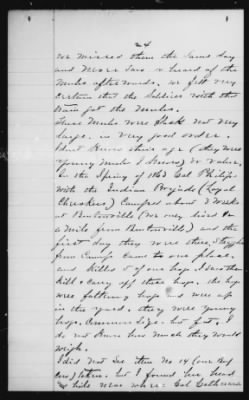 24
we missed them the same day
and never saw or heard of the
Mules afterwards, we felt very
certain that the Soldiers with the
train got the Mules.
These Mules were Black not very
large, in very good order.
I don't know their age (they were
young Mules I know) or value.
In the Spring of 1863 Col Philips
with the Indian Brigade (Loyal
Cherokees) Camped about 2 Weeks
at Bentonville (We only lived
a Mile from Bentonville) and the
first day they were there,
from Camp Came to our place,
and killed of our hogs I saw them
kill & carry off these hogs, the hogs
were fattening hogs and were up
in the yard, they were young
hogs, Common size but fat, I
do not know how much they would
weigh.
I did not see item No 14 (one Bay
) taken, but I found her, head
hide near where Col